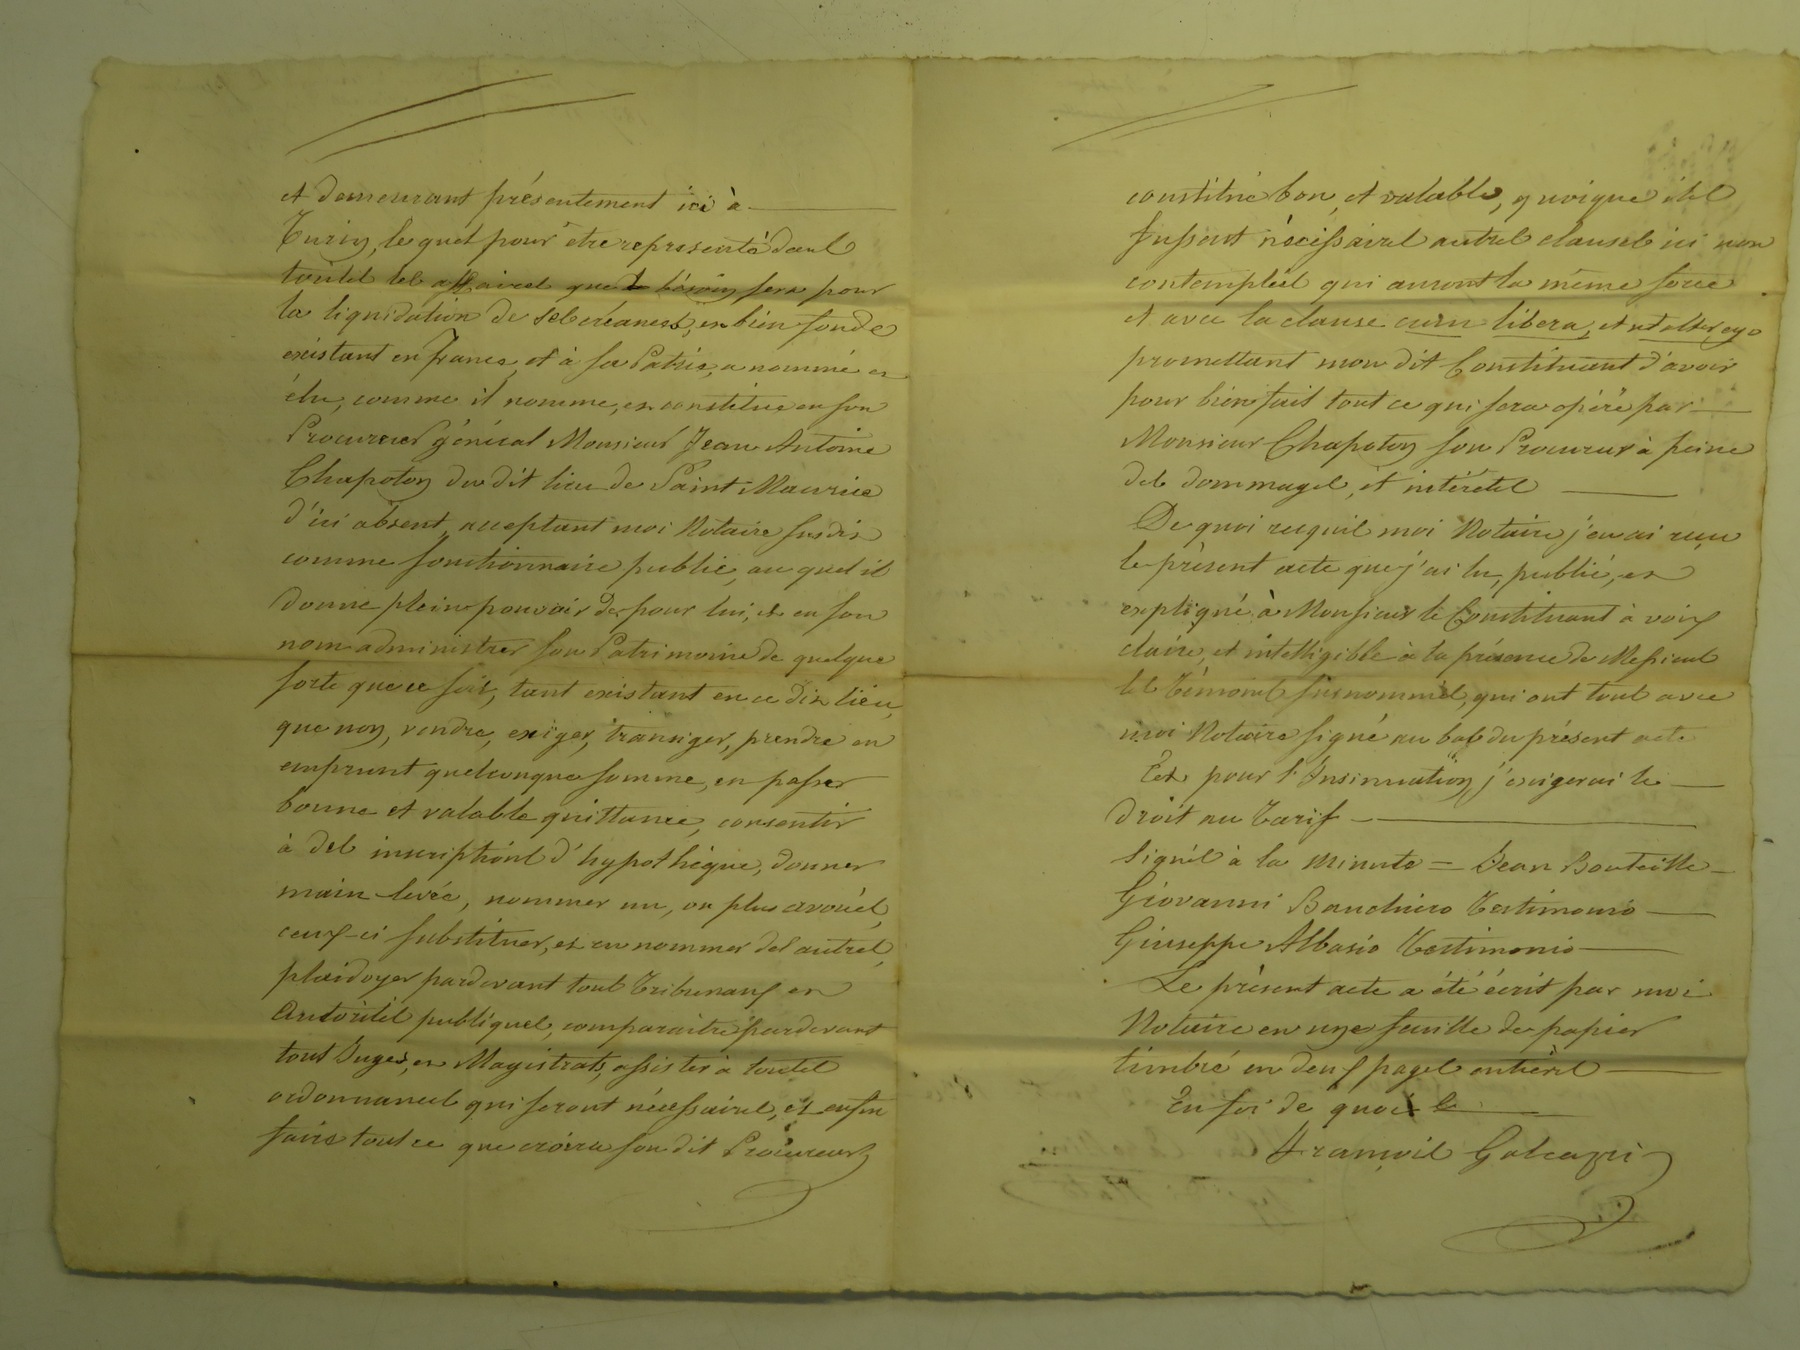 et demeurant présentement ici à
Turin, lequel pour être représenté dans
toutes les affaires que besoin sera pour
la liquidation de ses créances, et bien fonde
existant en France, et à sa Patrie, a nommé et
élu, comme il nomme, et constitue en son
Procureur général Monsieur Jean Antoine
Chapoton du dit lieu de Saint Maurice
d'ici absent, acceptant moi Notaire susdit
comme fonctionnaire public, au quel il
donne plein pouvoir de pour lui, et en son
nom administrer son Patrimoine de quelque
sorte que ce soit, tant existant en ce dit lieu,
que non, vendre, exiger, transiger, prendre en
emprunt quelconque somme, en passer
bonne et valable quittance, consentir
à des inscriptions d'hypothèque, donner
main-levée, nommer un, ou plus avoués,
ceux-ci substituer, et en nommer des autres,
plaidoyer pardevant tous Tribunaux et
Autorités publiques, comparaitre pardevant
tout Juges, et Magistrats, assister à toutes
ordonnances qui seront nécessaires, et enfin
faire tout ce que croira son dit Procureur
constitué bon, et valable, quoique étes
fussent nécessaires autres clauses ici non
contemplées qui auront la même force
et avec la clause cum libera, et ut alter ego
promettant mon dit Constituant d'avoir
pour bien fait tout ce qui sera opéré par
Monsieur Chapoton son Procureur à peine
des dommages, et intérêtes
De quoi requis moi Notaire j'en ai reçu
le présent acte que j'ai lu, publié, et
expliqué à Monsieur le Constituant à voix
claire, et intelligible à la présence de Messieurs
les témoins susnommés, qui ont tous avec
moi Notaire signé au bas du présent acte
Et pour l'Insinuation j'exigerai le
droit au Tarif
Signés à la minute = Jean Bouteille
Giovanni Banchiero Testimonio
Giuseppe Albasio Testimonio
Le présent acte a été écrit par moi
Notaire en une feuille de papier
timbré en deux pages entières
En foi de quoi
François Galeazzi